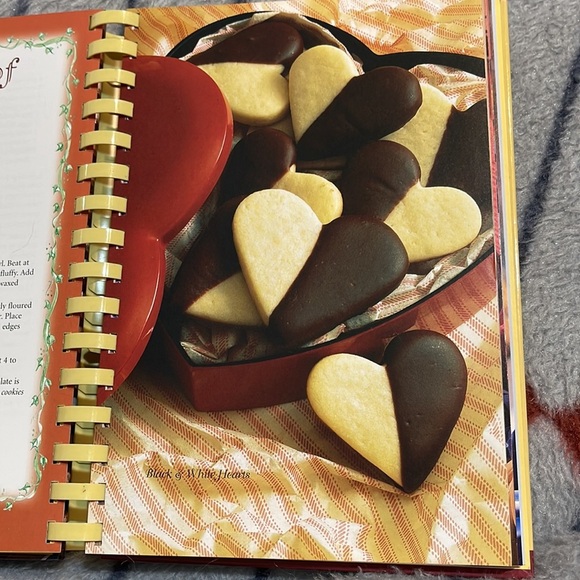 of
l. Beat at
fluffy. Add
waxed
ly floured
. Place
edges
t 4 to
late is
cookies
Black & White Hearts